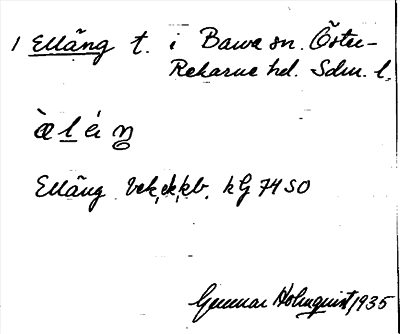 1 Elläng t. i Bawa sn. Öster-
Rekarne hd. Sdm. l.
àe l é ŋ
Elläng bek, ek, kb. kG 74 SO
Gunnar Holmquist 1935